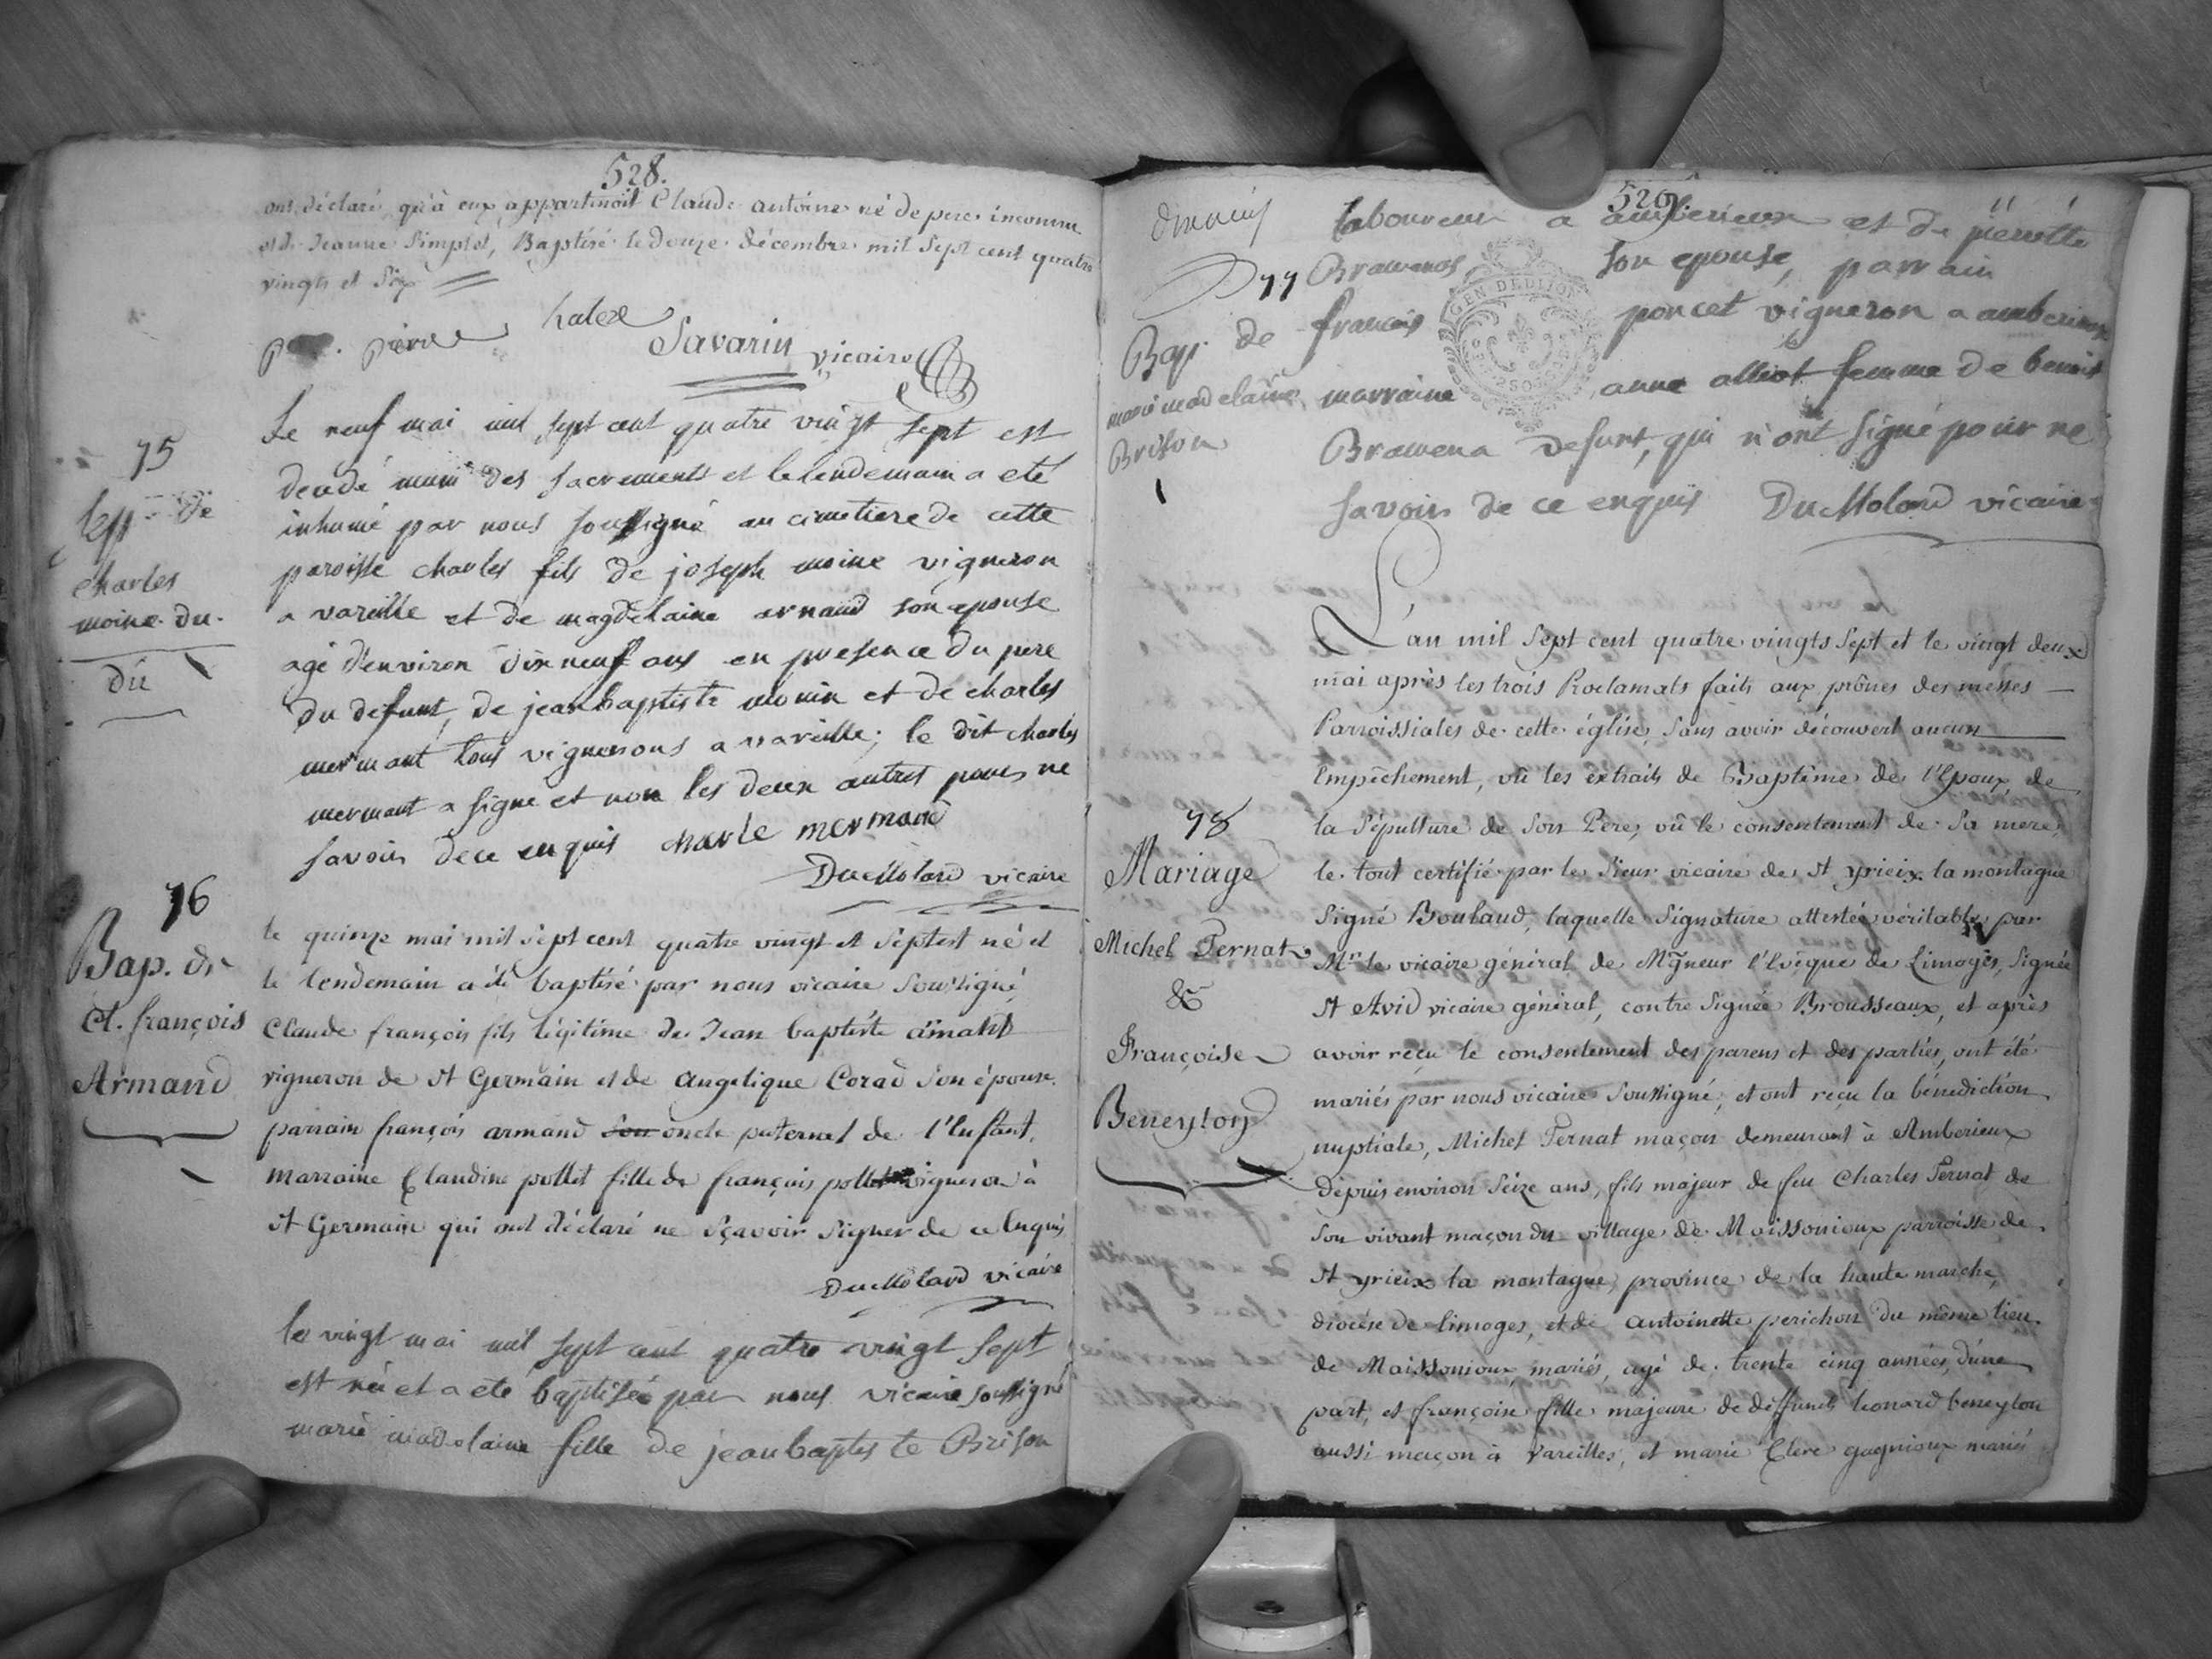 528.
ont déclaré qu'à eux appartinoit Claude antoine né de pere inconnu
et de Jeanne Simplet, Baptisé le douze décembre mil sept cent quatre
vingts et six
pierre Savarin vicaire
75
Sep de
charles
moine du.
du
Le neuf mai mil sept cent quatre vingt sept est
decedé muni des sacrements et le lendemain a eté
inhumé par nous soussigné au cimetiere de cette
paroisse charles fils de joseph moine vigneron
a vareille et de magdelaine arnaud son epouse
agé d'environ dix neuf ans en presence du pere
du defunt, de jean baptiste monin et de charles
mermant tous vignerons a vareille; le dit charles
mermant a signé et non les deux autres pour ne
savoir de ce enquis charle mermand
DuMolard vicaire
76
Bap. de
Cl. françois
Armand
le quinze mai mil sept cent quatre vingt et sept est né et
le lendemain a été baptisé par nous vicaire soussigné
Claude françois fils légitime de Jean baptiste
vigneron de St Germain et de angelique Corad son épouse.
parrain françois armand son oncle paternel de l'Enfant,
marraine Claudine pollet fille de françois pollet vigneron à
St Germain qui ont déclaré ne sçavoir signer de ce Enquis
DuMolard vicaire
le vingt mai mil sept cent quatre vingt sept
est née et a eté baptisée par nous vicaire soussigné
marie madelaine fille de jean baptiste Brison
526
77
Bap. de
marie madelaine
Brison
laboureur a amberieux et de pierrette
Bramenas son epouse, parrain
francois poncet vigneron a amberieux
marraine anne alliot femme de benoit
Bramena defunt, qui n'ont signé pour ne
savoir de ce enquis DuMolard vicaire
78
Mariage
Michel Pernat
&
Françoise
Beneyton
L'an mil sept cent quatre vingts sept et le vingt deux
mai après les trois Proclamats faits aux prônes des messes
Parroissiales de cette église, sans avoir découvert aucun
Empêchement, vû les extraits de Baptême de l'Epoux, de
la Sépulture de son Pere, vû le consentement de sa mere,
le tout certifié par le Sieur vicaire de St yrieix la montagne
Signé Boulaud, laquelle signature attestée véritable par
Mr. le vicaire général de Mgneur l'Evêque de Limoges, Signée
St Avid vicaire général, contre Signée Brousseaux, et après
avoir reçu le consentement des parens et des parties, ont été
mariés par nous vicaire soussigné, et ont reçu la bénédiction
nuptiale, Michel Pernat maçon demeurant à Amberieux
depuis environ seize ans, fils majeur de feu Charles Pernat de
son vivant maçon du village de Maissonioux parroisse de
St yrieix la montagne, province de la haute marche,
diocése de limoges, et de antoinette perichon du même lieu.
de Maissonioux mariés, agé de trente cinq années, d'une
part, et françoise fille majeure de deffunts leonard beneyton
aussi maçon à Vareilles, et marie Clere gagnioux mariés